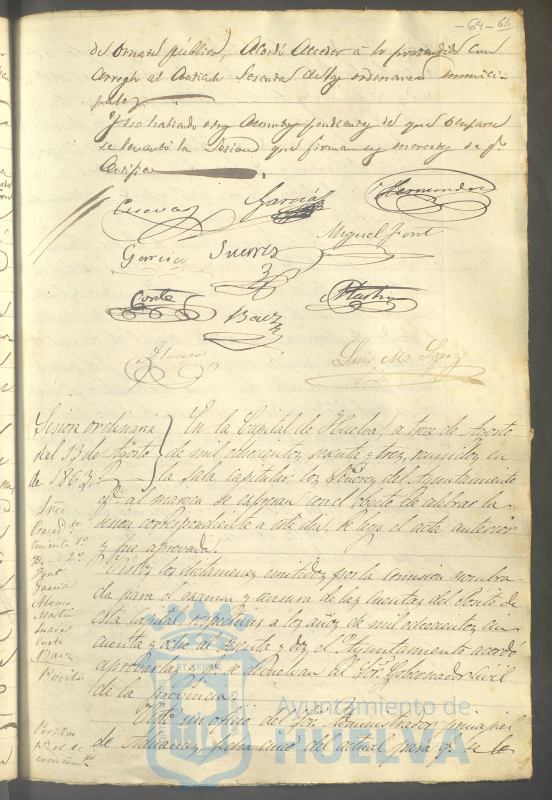 - 64 - 64
de Ornato público, Acordó Acceder á lo pretendido con
arreglo al Articulo Sesenta de las ordenanzas munici-
pales.
Y no habiendo otros Asuntos pendientes de que Ocuparse
se levantó la Sesion que firman sus mercedes de q.e
Certifica
Garcia
Hernandez
Garcia
Suarez
Miguel Font
Conte
Baez
Martin
Alonso
Luis M.
Sesion ordinaria
del 13 de Agosto
de 1863.
En la Capital de Huelva, a trece de Agosto
de mil ochocientos sesenta y tres, reunidos en
la Sala capitular los Señores del Ayuntamiento
q.e al margen se espresan con el objeto de celebrar la
sesion correspondiente a este dia. Se leyó el acta anterior
y fue aprobada.
Vistos los dictamenes emitidos por la comision nombra-
da para el examen y censura de las cuentas del Posito de
esta capital respectivas a los años de mil ochocientos cin-
cuenta y ocho al sesenta y dos, el Ayuntamiento acordó
aprobarlas y se devuelvan al Sor. Gobernador Civil
de la provincia.
Visto un oficio del Sor. Administrador principal
de fecha once del actual para q.e se le
Sres
Presid.te
Teniente 1.o
Yd. 2.o
Font
Garcia
Alonso
Martin
Suarez
Conte
Baez
Posito
Ayuntamiento de
HUELVA